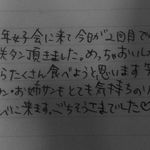 年女子会に来て今日が2回目で
タン頂きました。めっちゃおいし
らたくさん食べようと思います
ン・お姉サンもとても気持ちのい
べに来ます。ごちそうさまでした♡